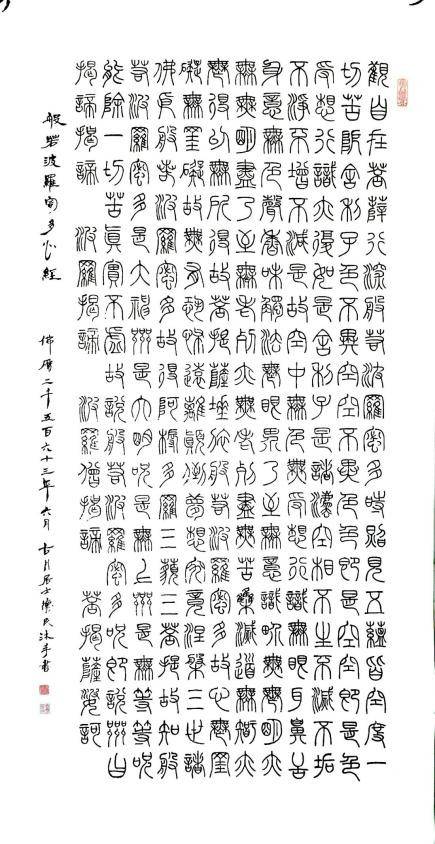 觀自在菩薩行深般若波羅密多時照見五蘊皆空度一
切苦厄舍利子色不異空空不異色色即是空空即是色
受想行識亦復如是舍利子是諸法空相不生不滅不垢
不淨不增不減是故空中無色無受想行識無眼耳鼻舌
身意無色聲香味觸法無眼界乃至無意識界無無明亦
無無明盡乃至無老死亦無老死盡無苦集滅道無智亦
無得以無所得故菩提薩埵依般若波羅密多故心無罣
礙無罣礙故無有恐怖遠離顛倒夢想究竟涅槃三世諸
佛依般若波羅密多故得阿耨多羅三藐三菩提故知般
若波羅密多是大神咒是大明咒是無上咒是無等等咒
能除一切苦真實不虛故說般若波羅密多咒即說咒曰
揭諦揭諦 波羅揭諦 波羅僧揭諦 菩提薩婆訶
般若波羅密多心經
佛曆二千五百六十三年六月 古月居士 沐手書